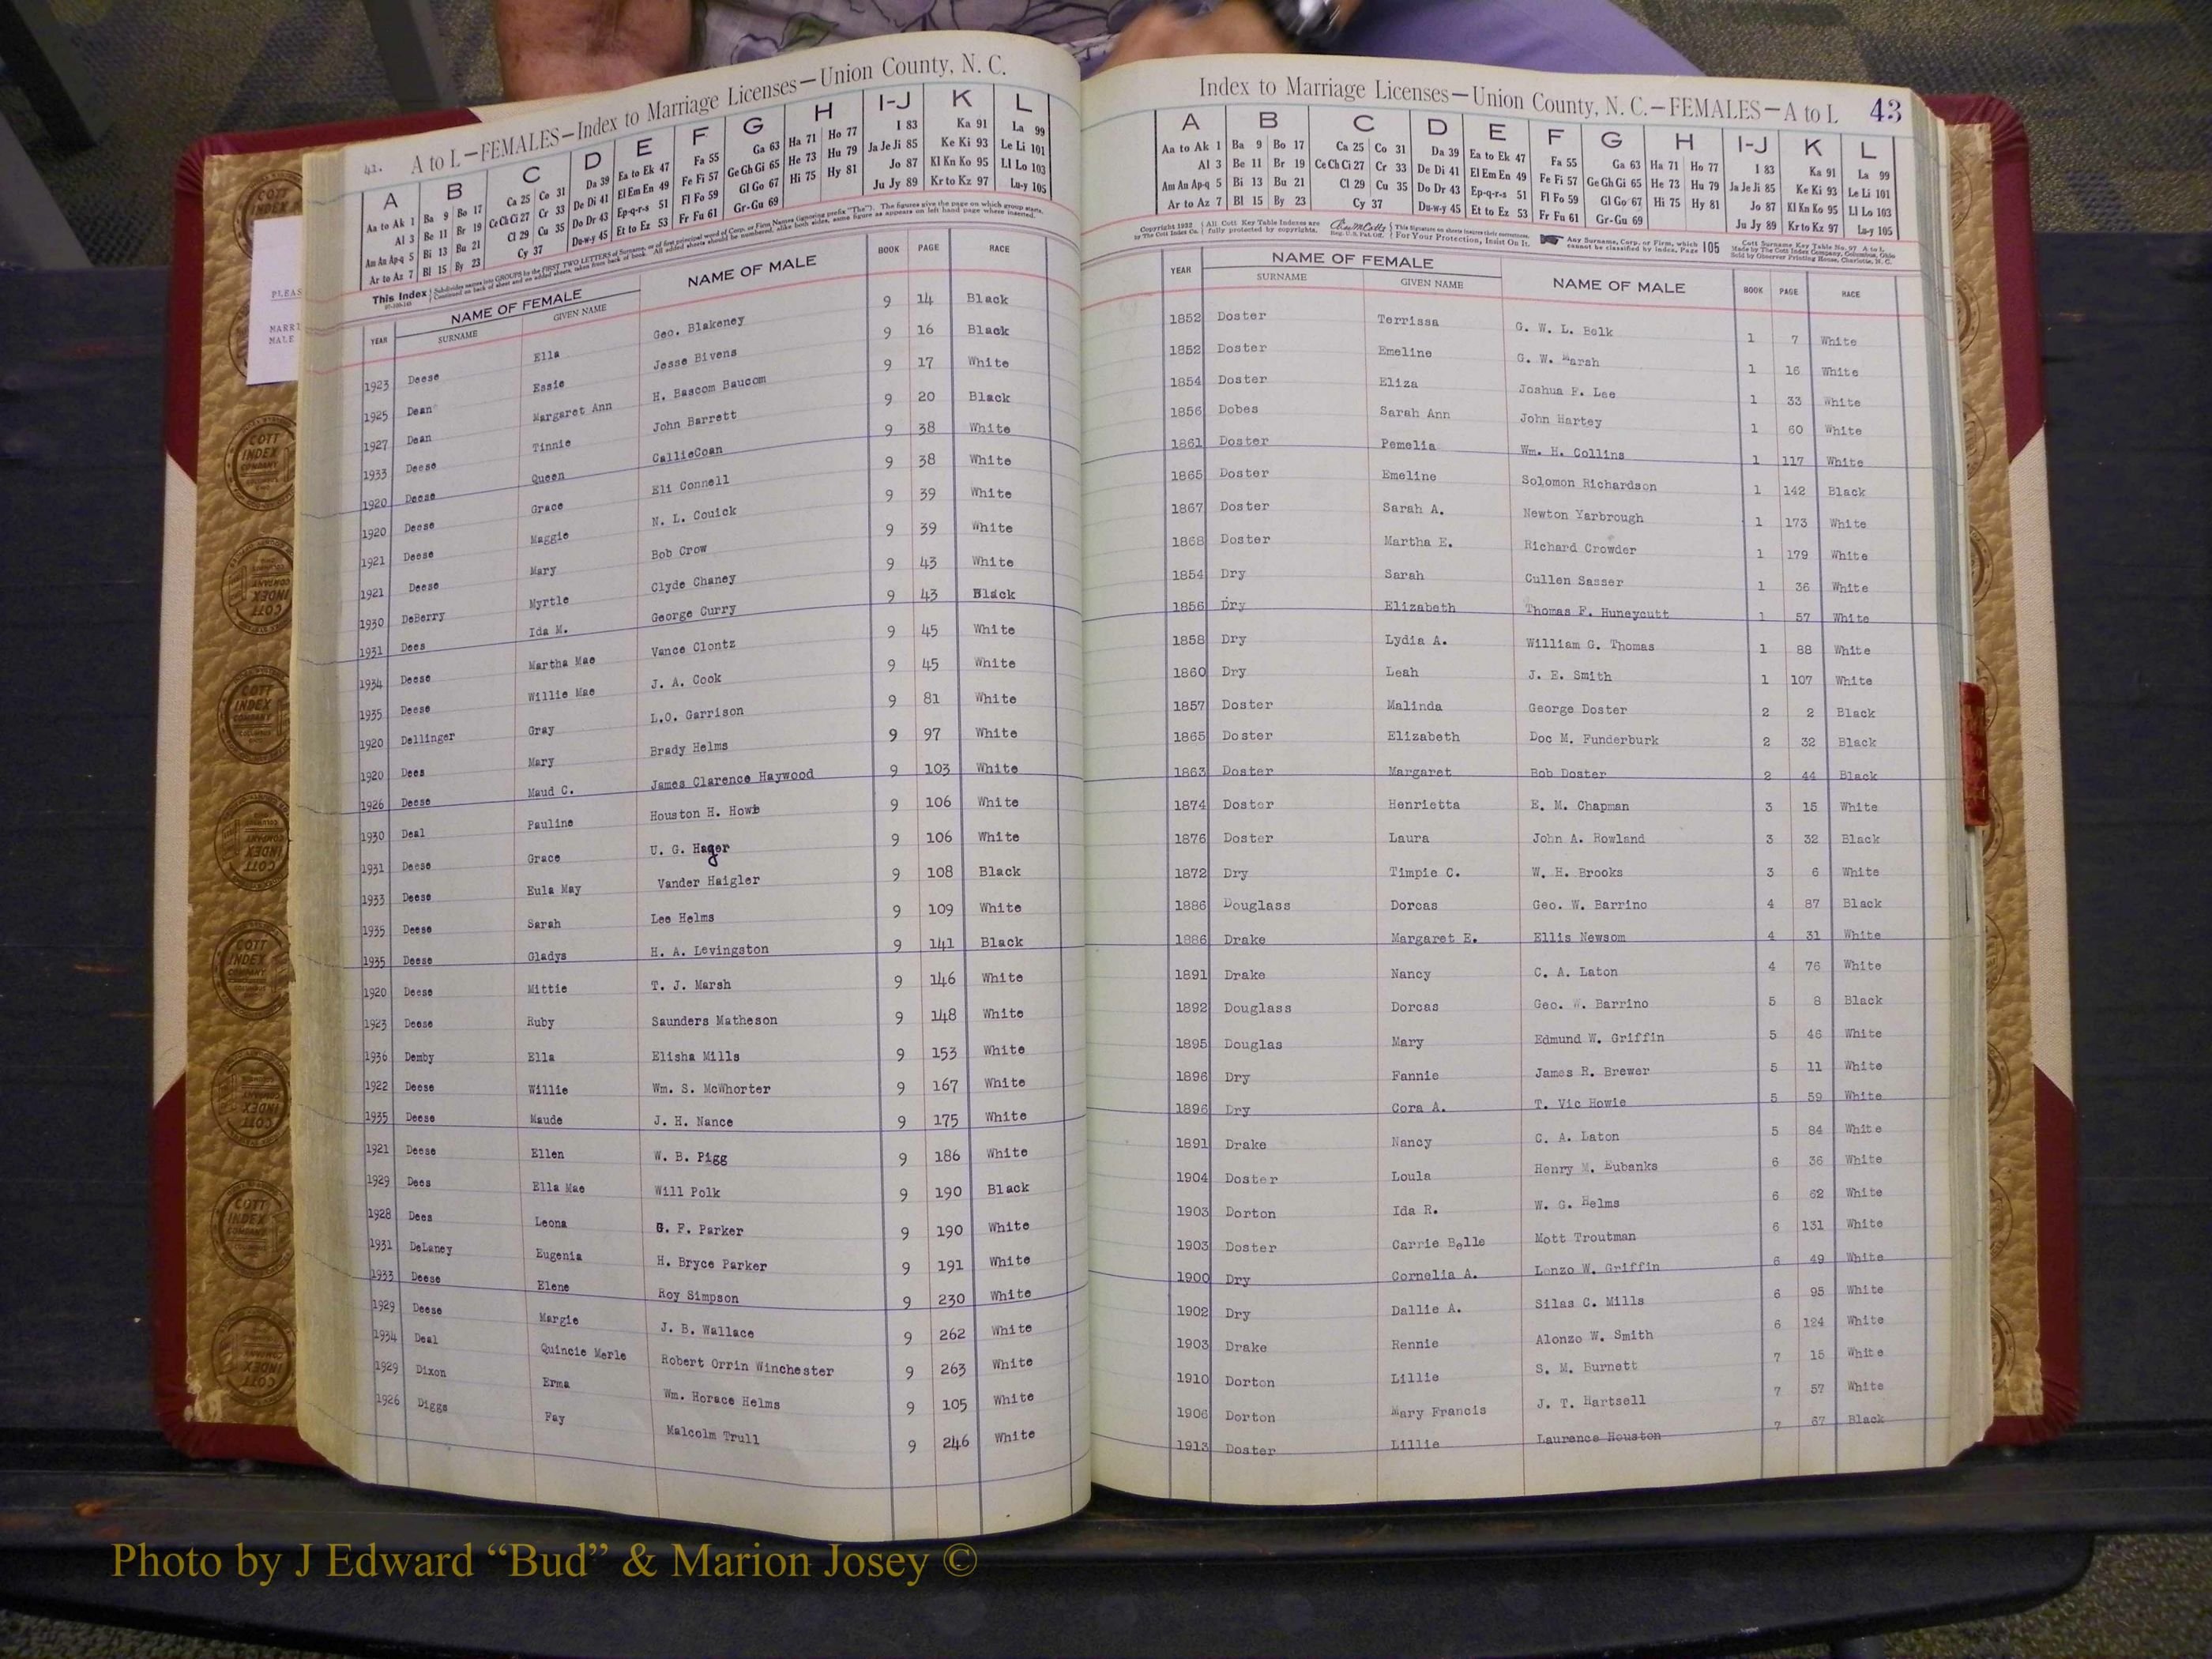 41. A to L—FEMALES—Index to Marriage Licenses—Union County, N. C.
A B C D E F G H I-J K L
Aa to Ak 1 Ba 9 Bo 17 Ca 25 Co 31 Da 39 Ea to Ek 47 Fa 55 Ga 63 Ha 71 Ho 77 I 83 Ka 91 La 99
Al 3 Be 11 Br 19 Ce Ch Ci 27 Cr 33 De Di 41 El Em En 49 Fe Fi 57 Ge Gh Gi 65 He 73 Hu 79 Ja Je Ji 85 Ke Ki 93 Le Li 101
Am An Ap-q 5 Bi 13 Bu 21 Cl 29 Cu 35 Do Dr 43 Ep-q-r-s 51 Fl Fo 59 Gl Go 67 Hi 75 Hy 81 Jo 87 Kl Kn Ko 95 Ll Lo 103
Ar to Az 7 Bl 15 By 23 Cy 37 Du-w-y 45 Et to Ez 53 Fr Fu 61 Gr-Gu 69 Ju Jy 89 Kr to Kz 97 Lu-y 105
This Index
YEAR NAME OF FEMALE SURNAME GIVEN NAME NAME OF MALE BOOK PAGE RACE
1923 Deese Ella Geo. Blakeney 9 14 Black
1925 Dean Essie Jesse Bivens 9 16 Black
1927 Dean Margaret Ann H. Bascom Baucom 9 17 White
1933 Deese Tinnie John Barrett 9 20 Black
1920 Deese Queen CallieCoan 9 38 White
1920 Deese Grace Eli Connell 9 38 White
1921 Deese Maggie N. L. Couick 9 39 White
1921 Deese Mary Bob Crow 9 39 White
1930 DeBerry Myrtle Clyde Chaney 9 43 White
1931 Dees Ida M. George Curry 9 43 Black
1934 Deese Martha Mae Vance Clontz 9 45 White
1935 Deese Willie Mae J. A. Cook 9 45 White
1920 Dellinger Gray L.O. Garrison 9 81 White
1920 Dees Mary Brady Helms 9 97 White
1926 Deese Maud C. James Clarence Haywood 9 103 White
1930 Deal Pauline Houston H. Howb 9 106 White
1931 Deese Grace U. G. Hager 9 106 White
1933 Deese Eula May Vander Haigler 9 108 Black
1935 Deese Sarah Lee Helms 9 109 White
1935 Deese Gladys H. A. Levingston 9 141 Black
1920 Deese Mittie T. J. Marsh 9 146 White
1923 Deese Ruby Saunders Matheson 9 148 White
1936 Demby Ella Elisha Mills 9 153 White
1922 Deese Willie Wm. S. McWhorter 9 167 White
1935 Deese Maude J. H. Nance 9 175 White
1921 Deese Ellen W. B. Pigg 9 186 White
1929 Dees Ella Mae Will Polk 9 190 Black
1928 Dees Leona G. F. Parker 9 190 White
1931 DeLaney Eugenia H. Bryce Parker 9 191 White
1933 Deese Elene Roy Simpson 9 230 White
1929 Deese Margie J. B. Wallace 9 262 White
1934 Deal Quincie Merle Robert Orrin Winchester 9 263 White
1929 Dixon Erma Wm. Horace Helms 9 105 White
1926 Diggs Fay Malcolm Trull 9 246 White
Index to Marriage Licenses—Union County, N. C.—FEMALES—A to L 43
A B C D E F G H I-J K L
Aa to Ak 1 Ba 9 Bo 17 Ca 25 Co 31 Da 39 Ea to Ek 47 Fa 55 Ga 63 Ha 71 Ho 77 I 83 Ka 91 La 99
Al 3 Be 11 Br 19 Ce Ch Ci 27 Cr 33 De Di 41 El Em En 49 Fe Fi 57 Ge Gh Gi 65 He 73 Hu 79 Ja Je Ji 85 Ke Ki 93 Le Li 101
Am An Ap-q 5 Bi 13 Bu 21 Cl 29 Cu 35 Do Dr 43 Ep-q-r-s 51 Fl Fo 59 Gl Go 67 Hi 75 Hy 81 Jo 87 Kl Kn Ko 95 Ll Lo 103
Ar to Az 7 Bl 15 By 23 Cy 37 Du-w-y 45 Et to Ez 53 Fr Fu 61 Gr-Gu 69 Ju Jy 89 Kr to Kz 97 Lu-y 105
YEAR NAME OF FEMALE SURNAME GIVEN NAME NAME OF MALE BOOK PAGE RACE
1852 Doster Terrissa G. W. L. Belk 1 7 White
1852 Doster Emeline G. W. Marsh 1 16 White
1854 Doster Eliza Joshua F. Lee 1 33 White
1856 Dobes Sarah Ann John Hartey 1 60 White
1861 Doster Pemelia Wm. H. Collins 1 117 White
1865 Doster Emeline Solomon Richardson 1 142 Black
1867 Doster Sarah A. Newton Yarbrough 1 173 White
1868 Doster Martha E. Richard Crowder 1 179 White
1854 Dry Sarah Cullen Sasser 1 36 White
1856 Dry Elizabeth Thomas F. Huneycutt 1 57 White
1858 Dry Lydia A. William G. Thomas 1 88 White
1860 Dry Leah J. E. Smith 1 107 White
1857 Doster Malinda George Doster 2 2 Black
1865 Doster Elizabeth Doc M. Funderburk 2 32 Black
1863 Doster Margaret Bob Doster 2 44 Black
1874 Doster Henrietta E. M. Chapman 3 15 White
1876 Doster Laura John A. Rowland 3 32 Black
1872 Dry Timpie C. W. H. Brooks 3 6 White
1886 Douglass Dorcas Geo. W. Barrino 4 87 Black
1886 Drake Margaret E. Ellis Newsom 4 31 White
1891 Drake Nancy C. A. Laton 4 76 White
1892 Douglass Dorcas Geo. W. Barrino 5 8 Black
1895 Douglas Mary Edmund W. Griffin 5 46 White
1896 Dry Fannie James R. Brewer 5 11 White
1896 Dry Cora A. T. Vic Howie 5 59 White
1891 Drake Nancy C. A. Laton 5 84 White
1904 Doster Loula Henry M. Eubanks 6 36 White
1903 Dorton Ida R. W. G. Helms 6 62 White
1903 Doster Carrie Belle Mott Troutman 6 131 White
1900 Dry Cornelia A. Lonzo W. Griffin 6 49 White
1902 Dry Dallie A. Silas C. Mills 6 95 White
1903 Drake Rennie Alonzo W. Smith 6 124 White
1910 Dorton Lillie S. M. Burnett 7 15 White
1906 Dorton Mary Francis J. T. Hartsell 7 57 White
1913 Doster Lillie Laurence Houston 7 67 Black
Photo by J Edward “Bud” & Marion Josey ©